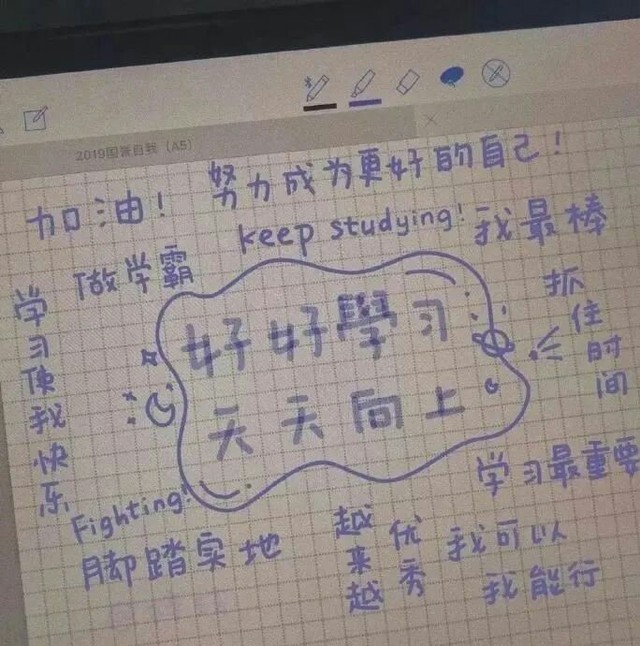 2019国家自玩（A5）
努力成为更好的自己！
加油！
keep studying!
我最棒
做学霸
学习使我快乐
好好學习
天天向上
抓住时间
学习最重要
Fighting!
脚踏实地
越来越优秀
我可以
我能行